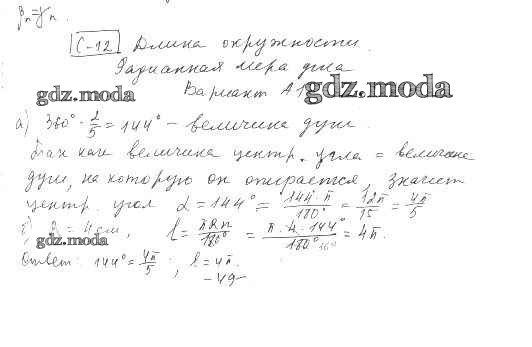 С-12 Длина окружности.
Радианная мера угла
gdz.moda Вариант А1 gdz.moda
а) 360° · 2/5 = 144° – величина дуги.
Так как величина центр. угла = величине
дуги, на которую он опирается, значит
центр. угол α = 144° = 144·π/180° = 12π/15 = 4π/5
б) R = 4 см, l = πRn/180° = π·4·144°/180° = 4π.
gdz.moda
Ответ: 144° = 4π/5 ; l = 4π.
- 49 -